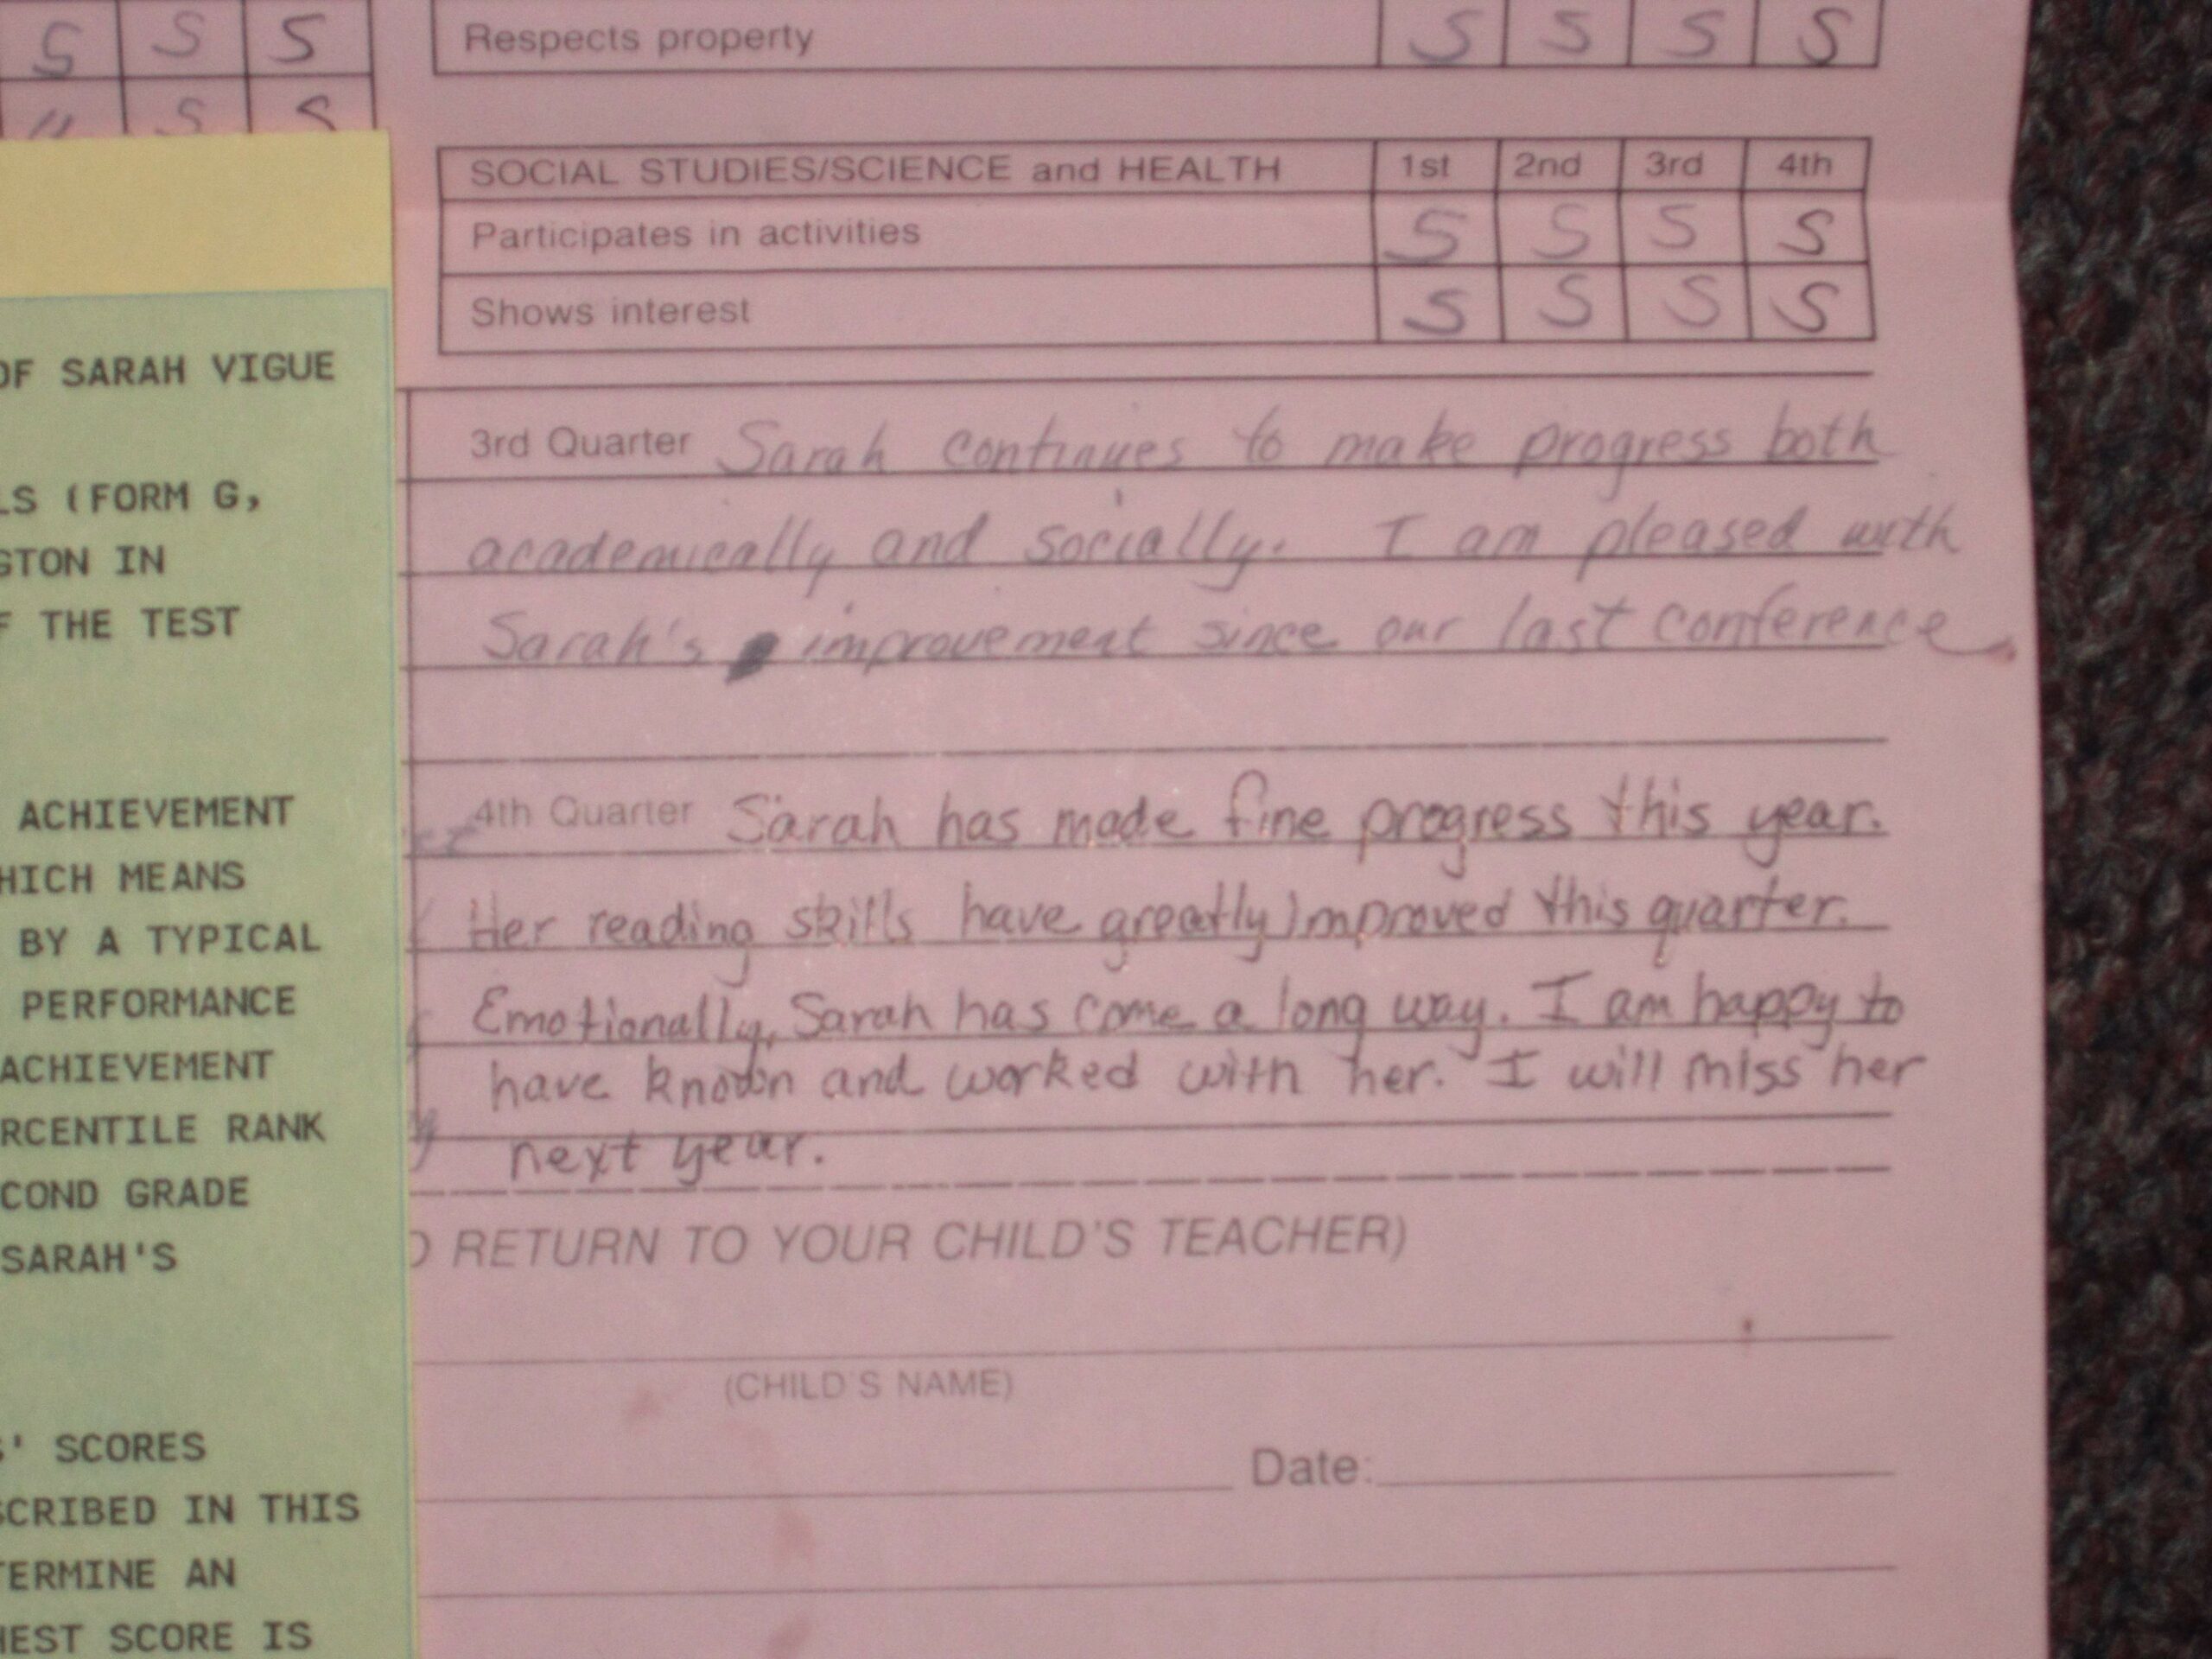 S S S
Respects property S S S S
" S S
SOCIAL STUDIES/SCIENCE and HEALTH 1st 2nd 3rd 4th
Participates in activities S S S S
Shows interest S S S S
OF SARAH VIGUE
LS (FORM G,
GTON IN
F THE TEST
ACHIEVEMENT
HICH MEANS
BY A TYPICAL
PERFORMANCE
ACHIEVEMENT
RCENTILE RANK
COND GRADE
SARAH'S
S' SCORES
SCRIBED IN THIS
TERMINE AN
HEST SCORE IS
3rd Quarter Sarah continues to make progress both
academically and socially. I am pleased with
Sarah's improvement since our last conference.
4th Quarter Sarah has made fine progress this year.
Her reading skills have greatly improved this quarter.
Emotionally, Sarah has come a long way. I am happy to
have known and worked with her. I will miss her
next year.
D RETURN TO YOUR CHILD'S TEACHER)
(CHILD'S NAME)
Date: